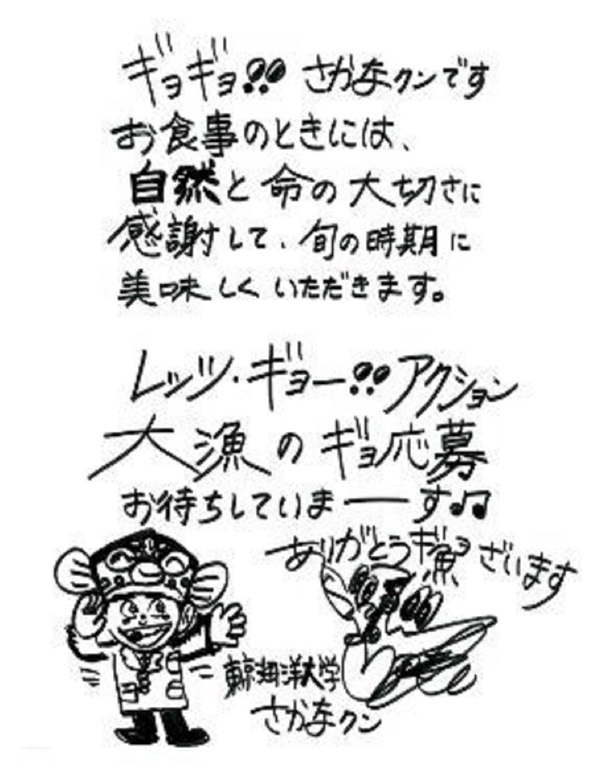 ギョギョ!! さかなクンです
お食事のときには、
自然と命の大切さに
感謝して、旬の時期に
美味しくいただきます。
レッツ・ギョー!! アクション
大漁のギョ応募
お待ちしていまーす♫
ありがとうギョ魚ざいます
東京海洋大学
さかなクン